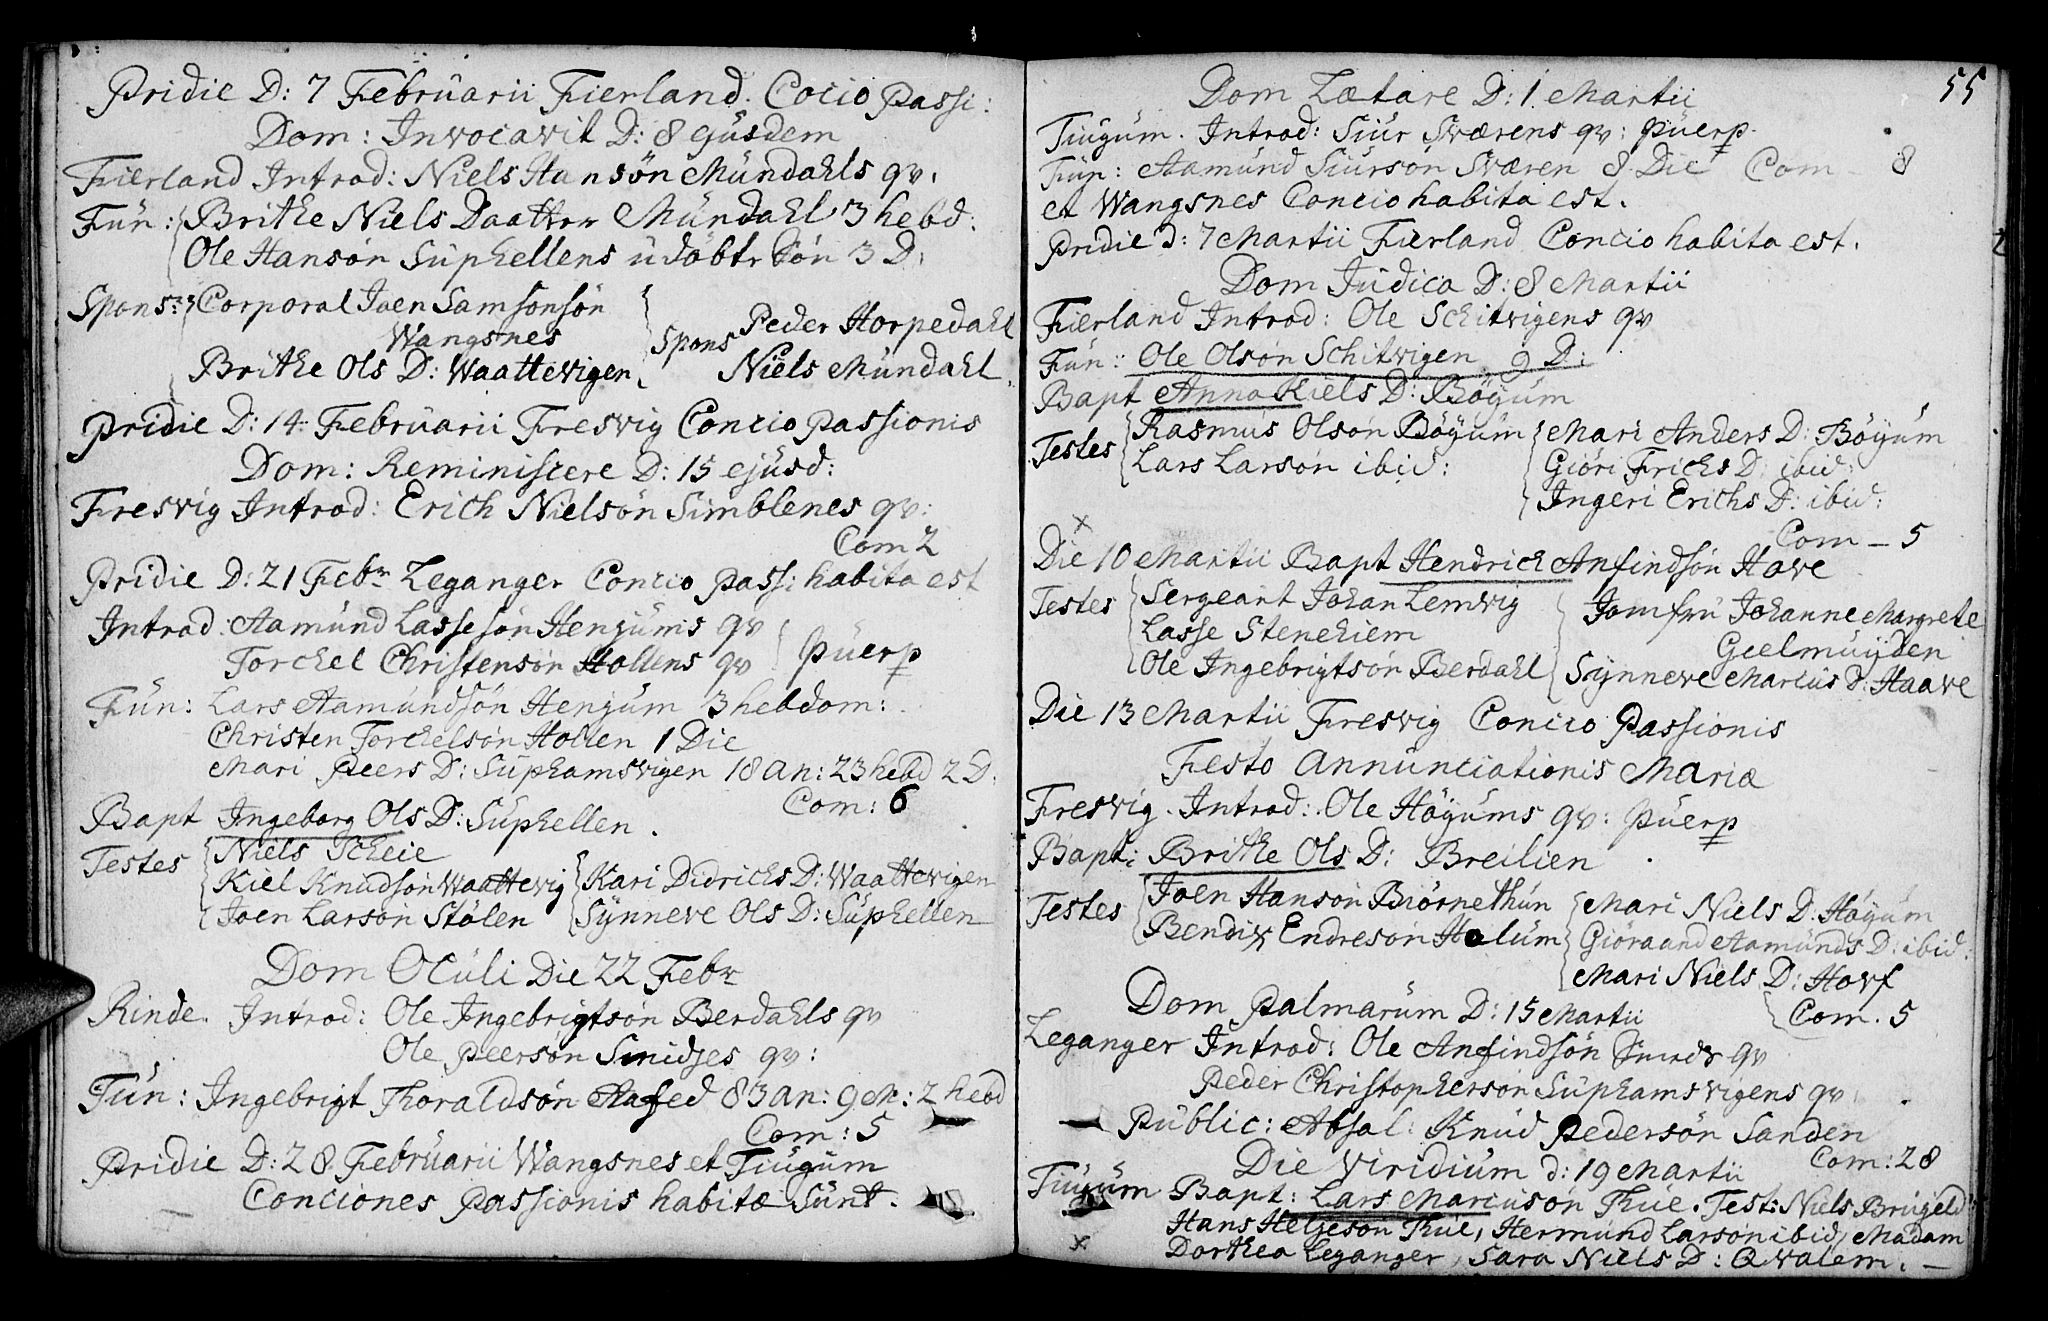 Pridie D: 7 Februarii Fierland. Cocio Passi:
Dom: Invocavit D: 8 ejusdem
Fierland Introd: Niels Hansön Mundahls qv.
Fun: Brithe Niels Daatter Mündahl 3 hebd:
Ole Hansön Suphellens udöbte Sön 3 D:
Spons: Corporal Joen Samsonsön
Wangsnes
Brithe Ols D: Waattevigen
Spons Peder Horpedahl
Niels Mundahl.
Pridie D: 14 Februarii Fresvig Concio Passionis
Dom: Reminiscere D: 15 ejusd:
Fresvig Introd: Erich Nielsön Simblenes qv:
Com 2
Pridie D: 21 Febr Leganger Concio Pass: habita est
Introd: Aamund Lassesön Henjums qv
Torchel Christensön Hollens qv puerp
Fun: Lars Aamundsön Henjum 3 hebdom:
Christen Torchelsön Hollen 1 Die
Mari Peers D: Suphamsvigen 18 an: 23 hebd 2 D:
Com: 6
Bapt Ingeborg Ols D: Suphellen.
Testes Niels Scheie
Kiel Knudsön Waattevig
Joen Larsön Stölen
Kari Didrichs D: Waattevigen
Synneve Ols D: Suphellen
Dom Oculi Die 22 Febr
Rinde. Introd: Ole Ingebrigtsön Berdahls qv
Ole Peersön Smidjes qv:
Fun: Ingebrigt Thoraldsön Aafed 83 an: 9 M: 2 hebd
Com: 5
Pridie D: 28 Februarii Wangsnes et Tiugum
Conciones Passionis habitæ sunt.
55
Dom Lætare D: 1 Martii
Tiugum. Introd: Siur Sværens qv: puerp.
Fun: Aamund Siursön Sværen 8 Die Com - 8
et Wangsnes Concio habita est.
Pridie d: 7 Martii Fierland Concio habita est.
Dom Judica D: 8 Martii
Fierland Introd: Ole Schitvigens qv
Fun: Ole Olsön Schitvigen 9 D:
Bapt Anna Kiels D: Böyum
Testes Rasmus Olsön Böyum
Lars Larsön ibid:
Mari Anders D: Böyum
Giöri Frichs D: ibid:
Ingeri Erichs D: ibid:
Com - 5
x
Die 10 Martii Bapt Hendrich Anfindsön Hove
Testes Sergeant Johan Lemvig
Lasse Stenehiem
Ole Ingebrigtsön Berdahl
Jomfru Johanne Margrete
Geelmuyden
Synneve Marcus D: Haave
Die 13 Martii Fresvig Concio Passionis
Festo Annunciationis Mariæ
Fresvig. Introd: Ole Höyums qv: puerp
Bapt: Brithe Ols D: Breilien
Testes Joen Hansön Biörnethun
Bendix Endresön Holum
Mari Niels D. Höyum
Giöraand Aamunds D: ibid:
Mari Niels D: Hovf
Com. 5
Dom Palmarum D: 15 Martii
Leganger Introd: Ole Anfindsön qv
Peder Christophersön Suphamsvigens qv.
Public: Absol: Knud Pedersön Sanden
Com: 28
Die Viridium d: 19 Martii
Tiugum Bapt: Lars Marcusön Thue. Test: Niels Brugeld
x
Hans Heljesön Thue, Hermund Larsön ibid, Madam
Dorthea Leganger, Sara Niels D: Qvalem. -